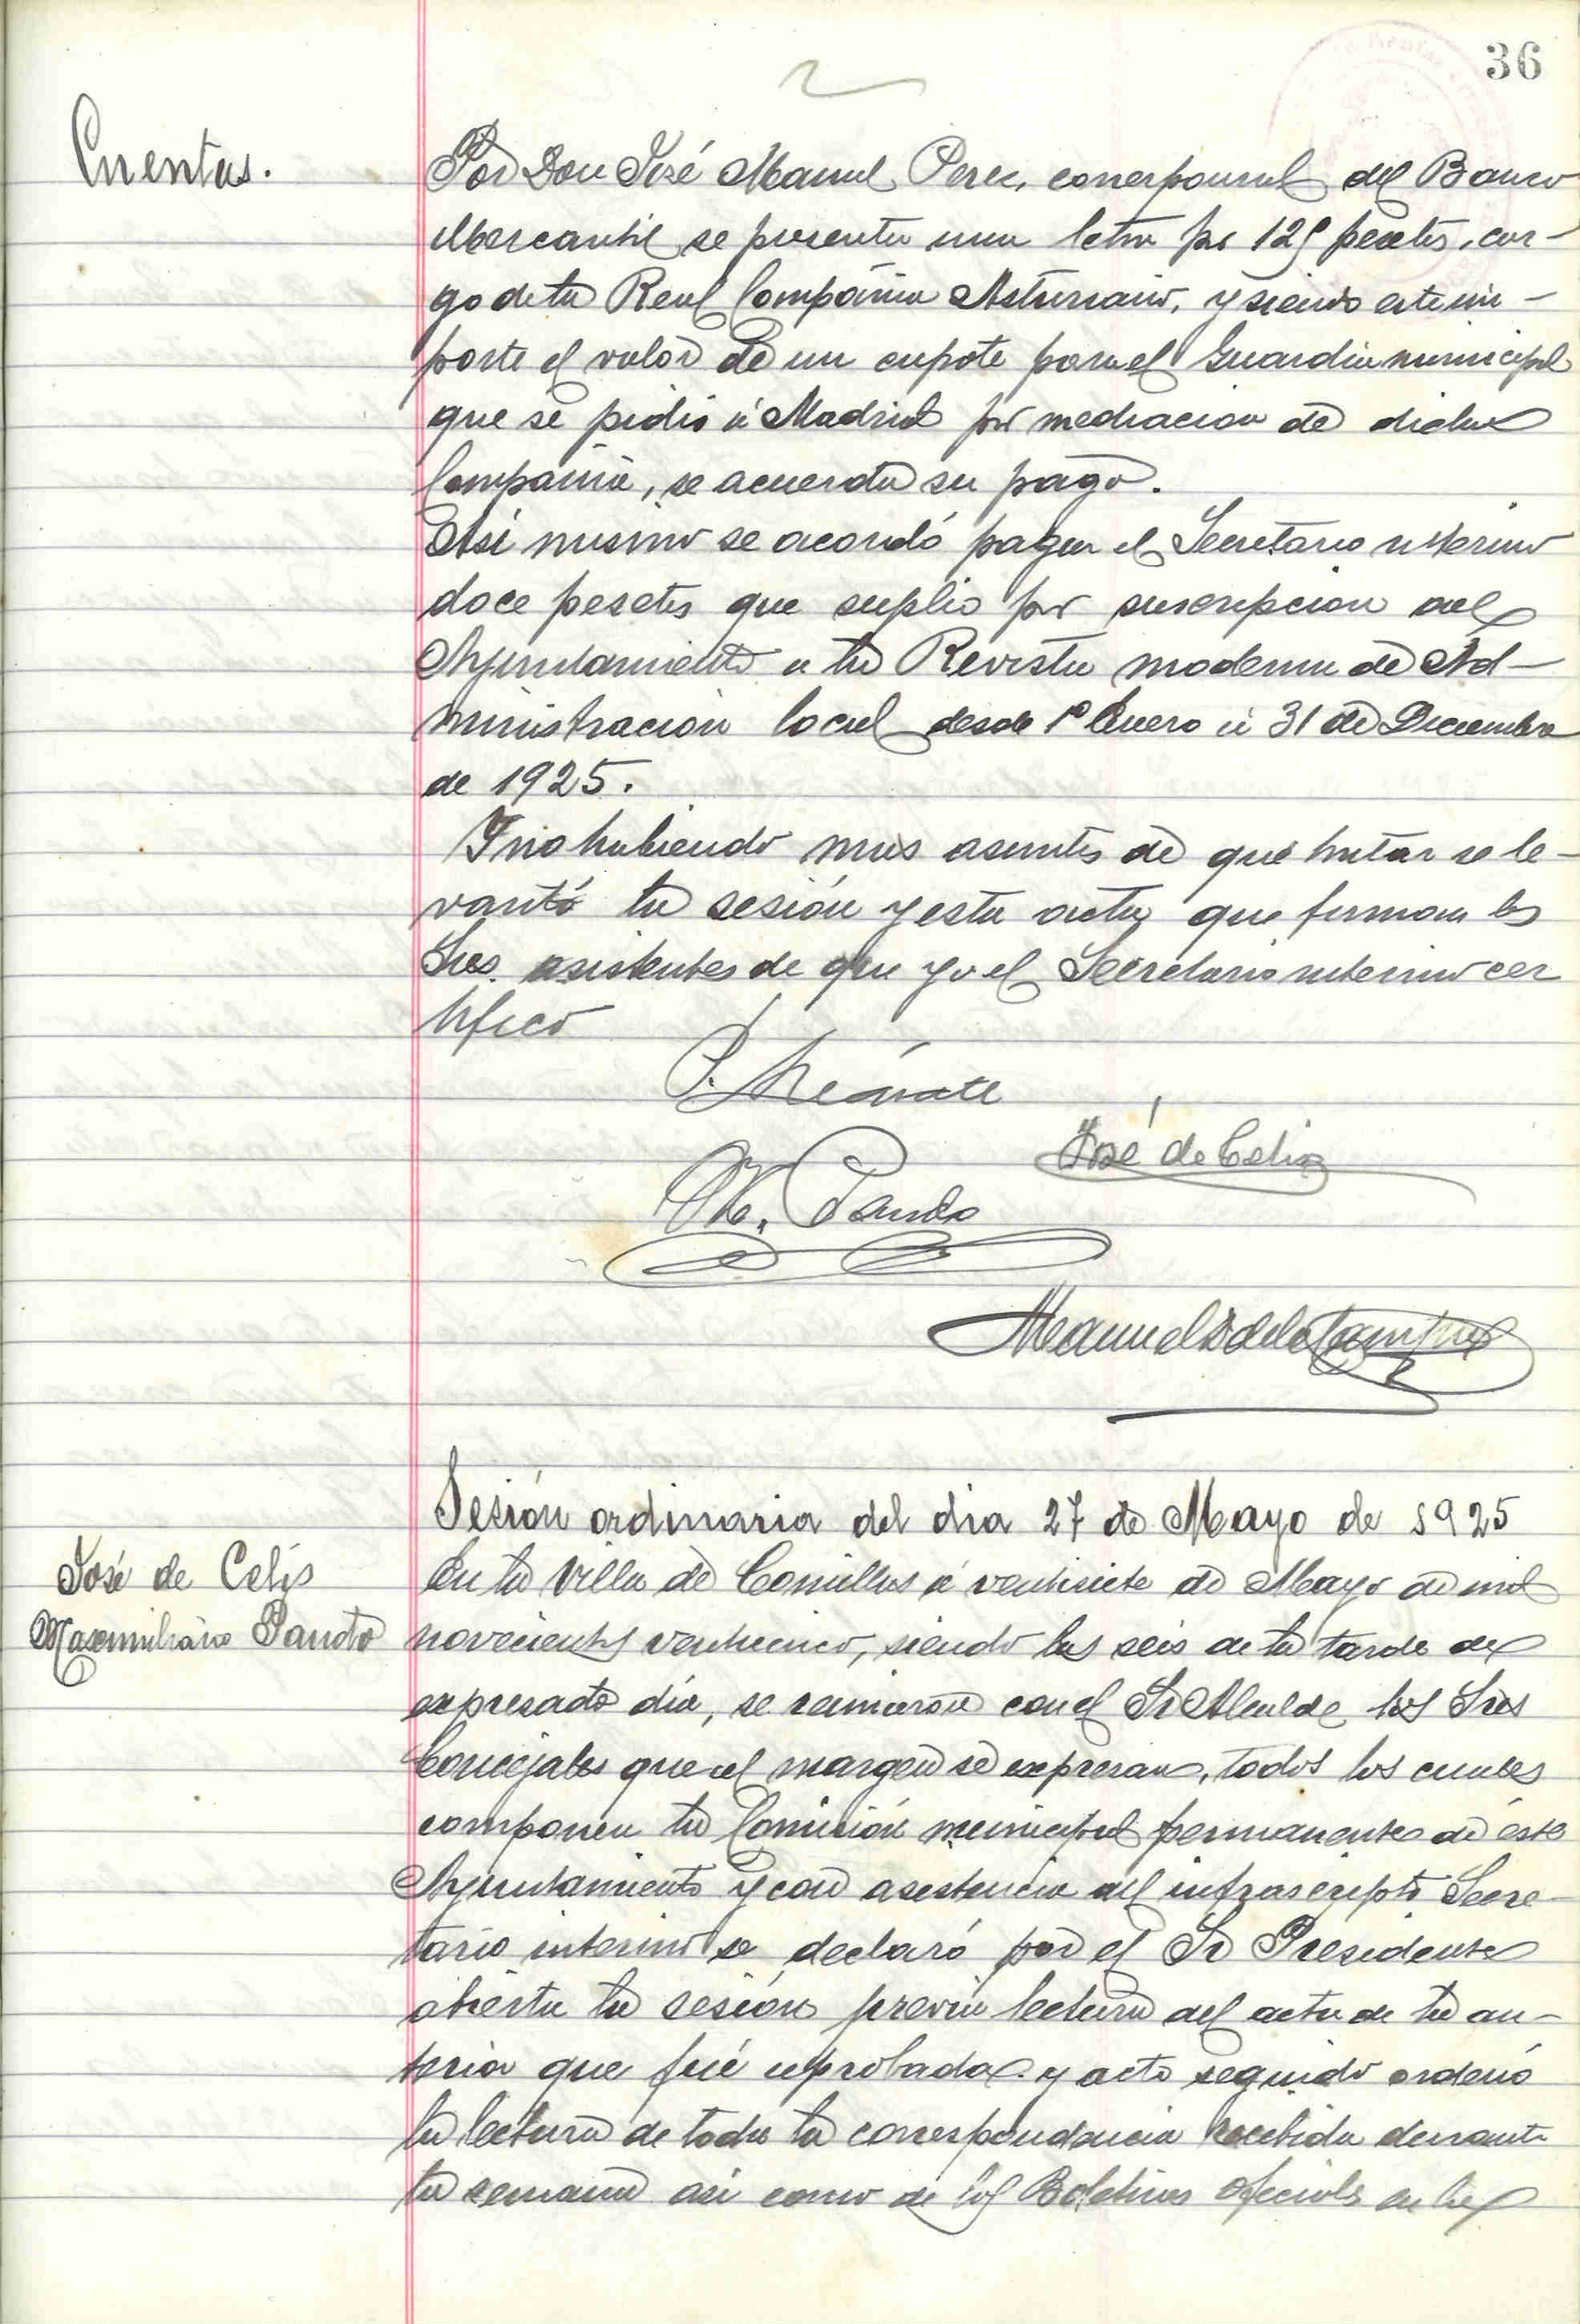 36
Cuentas.
Por Don José Manuel Perez, corresponsal del Banco
Mercantil se presenta una letra por 125 pesetas, car-
go de la Real Compañia Asturiana, y siendo este im-
porte el valor de un capote para el Guardia municipal
que se pidió á Madrid por mediacion de dicha
Compañia, se acuerda su pago.
Así mismo se acordó pagar al Secretario interino
doce pesetas que suplió por suscripcion del
Ayuntamiento a la Revista moderna de Ad-
ministracion local desde 1º Enero á 31 de Diciembre
de 1925.
Y no habiendo mas asuntos de que tratar se le-
vantó la sesión y esta acta que firman los
Sres. asistentes de que yo el Secretario interino cer
tifico
José de Celis
M. Pando
Sesión ordinaria del dia 27 de Mayo de 1925
José de Celis
Maximiliano Pando
En la Villa de Comillas á ventisiete de Mayo de mil
novecientos venticinco, siendo las seis de la tarde del
expresado día, se reunieron con el Sr Alcalde los Sres
Concejales que al margen se expresan, todos los cuales
componen la Comisión municipal permanente de éste
Ayuntamiento y con asistencia del infrascripto Secre-
tario interino se declaró por el Sr Presidente
abierta la sesión previa lectura del acta de la an-
terior que fué aprobada y acto seguido ordenó
la lectura de toda la correspondencia recibida durante
la semana asi como de los Boletines oficiales en los